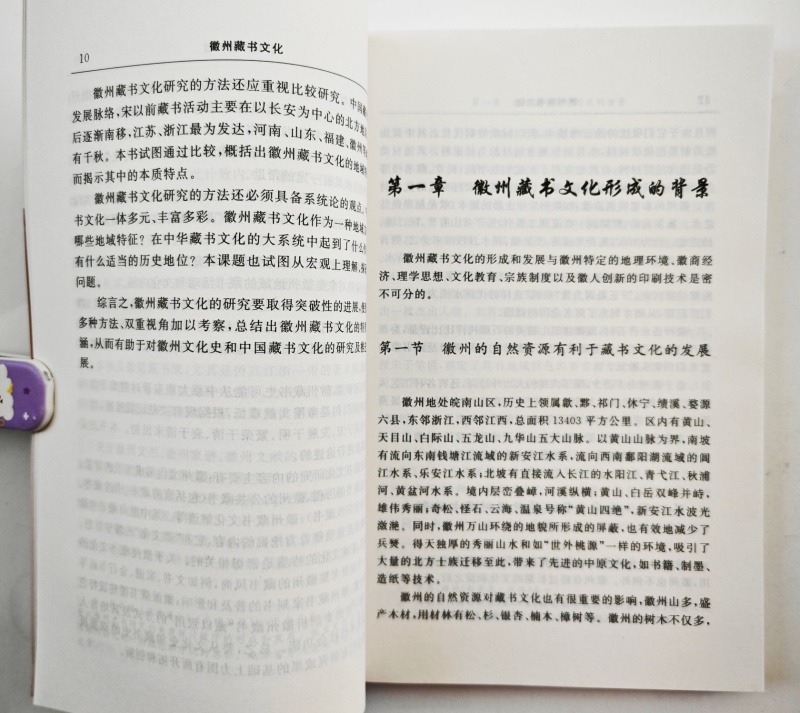 10
徽州藏书文化
徽州藏书文化研究的方法还应重视比较研究。中国
发展脉络，宋以前藏书活动主要在以长安为中心的北方地
后逐渐南移，江苏、浙江最为发达，河南、山东、福建、徽州
有千秋。本书试图通过比较，概括出徽州藏书文化的地域
而揭示其中的本质特点。
徽州藏书文化研究的方法还必须具备系统论的观点，
书文化一体多元、丰富多彩。徽州藏书文化作为一种地域
哪些地域特征？在中华藏书文化的大系统中起到了什么
有什么适当的历史地位？本课题也试图从宏观上理解，
问题。
综言之，徽州藏书文化的研究要取得突破性的进展，
多种方法、双重视角加以考察，总结出徽州藏书文化的
涵，从而有助于对徽州文化史和中国藏书文化的研究及
展。
第一章 徽州藏书文化形成的背景
徽州藏书文化的形成和发展与徽州特定的地理环境、徽商经
济、理学思想、文化教育、宗族制度以及徽人创新的印刷技术是密
不可分的。
第一节 徽州的自然资源有利于藏书文化的发展
徽州地处皖南山区，历史上领属歙、黟、祁门、休宁、绩溪、婺源
六县，东邻浙江，西邻江西，总面积13403平方公里。区内有黄山、
天目山、白际山、五龙山、九华山五大山脉。以黄山山脉为界，南坡
有流向东南钱塘江流域的新安江水系，流向西南鄱阳湖流域的阊
江水系、乐安江水系；北坡有直接流入长江的水阳江、青弋江、秋浦
河、黄盆河水系。境内层峦叠嶂，河溪纵横；黄山、白岳双峰并峙，
雄伟秀丽；奇松、怪石、云海、温泉号称“黄山四绝”，新安江水波光
潋滟。同时，徽州万山环绕的地貌所形成的屏蔽，也有效地减少了
兵燹。得天独厚的秀丽山水和如“世外桃源”一样的环境，吸引了
大量的北方士族迁移至此，带来了先进的中原文化，如书籍、制墨、
造纸等技术。
徽州的自然资源对藏书文化也有很重要的影响，徽州山多，盛
产木材，用材林有松、杉、银杏、楠木、樟树等。徽州的树木不仅多，